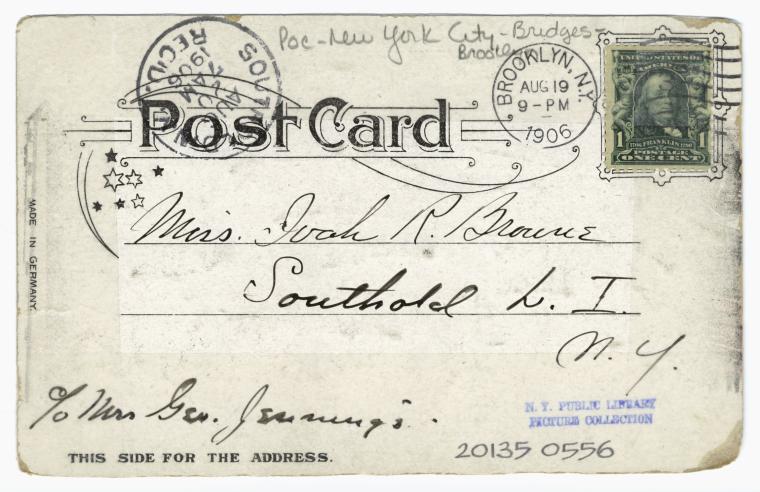 Poc-New York City-Bridges-
Brooklyn
BROOKLYN, N.Y.
AUG 19
9-PM
1906
UNITED STATES OF
AMERICA
1 1
1706 FRANKLIN 1790
POSTAGE
ONE CENT
SOUTHOLD
AUG
7 AM
1906
REC'D.
Post Card
Miss. Ivah R. Browne
Southold L. I.
N. Y.
c/o Mrs Geo. Jennings.
MADE IN GERMANY.
N. Y. PUBLIC LIBRARY
PICTURE COLLECTION
20135 0556
THIS SIDE FOR THE ADDRESS.